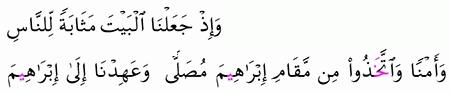 وَإِذْ جَعَلْنَا ٱلْبَيْتَ مَثَابَةً لِّلنَّاسِ
وَأَمْنًا وَٱتَّخَذُوا۟ مِن مَّقَامِ إِبْرَٰهِيمَ مُصَلًّى وَعَهِدْنَا إِلَىٰ إِبْرَٰهِيمَ